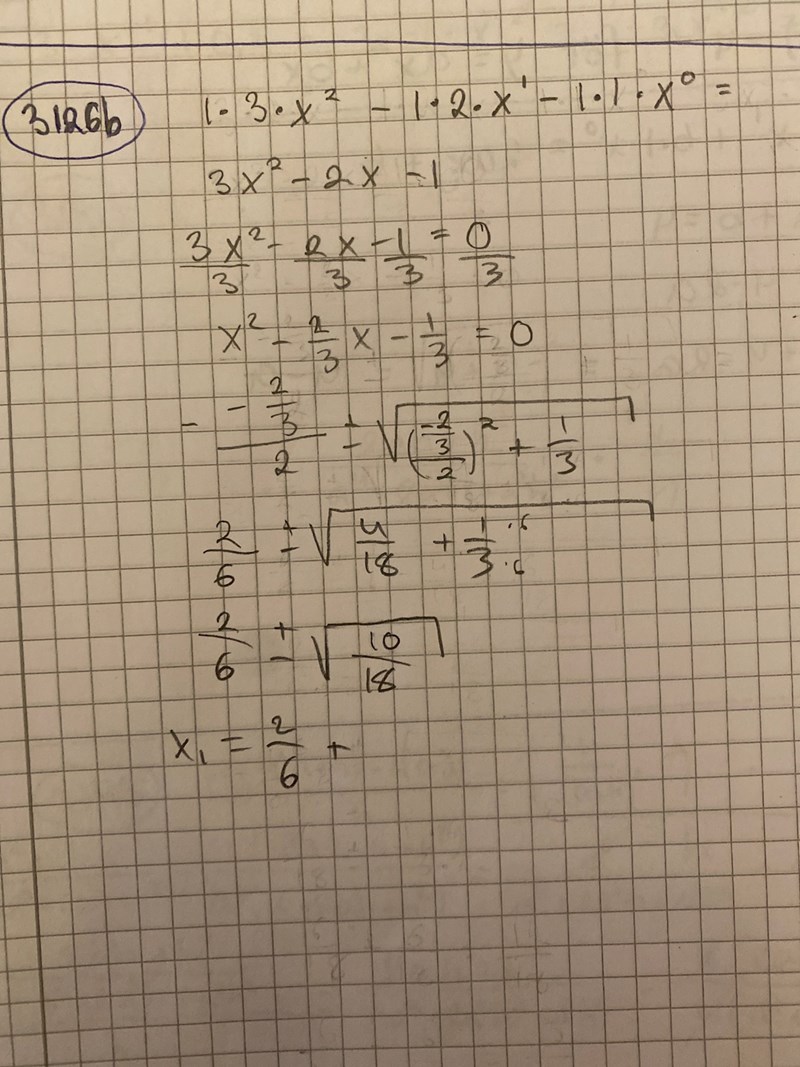 3126b 1·3·x² - 1·2·x¹ - 1·1·x⁰ =
3x² - 2x - 1
3x²/3 - 2x/3 - 1/3 = 0/3
x² - 2/3 x - 1/3 = 0
- (-2/3)/2 ± √(((-2/3)/2)² + 1/3)
2/6 ± √(4/18 + 1/3 ·6/·6)
2/6 ± √(10/18)
x₁ = 2/6 +